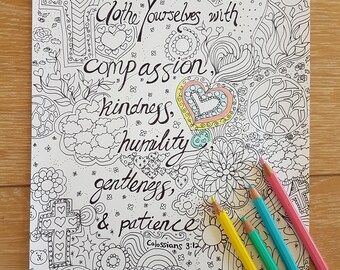 Clothe Yourselves with
compassion,
kindness,
humility
gentleness,
& patience
Colossians 3:12